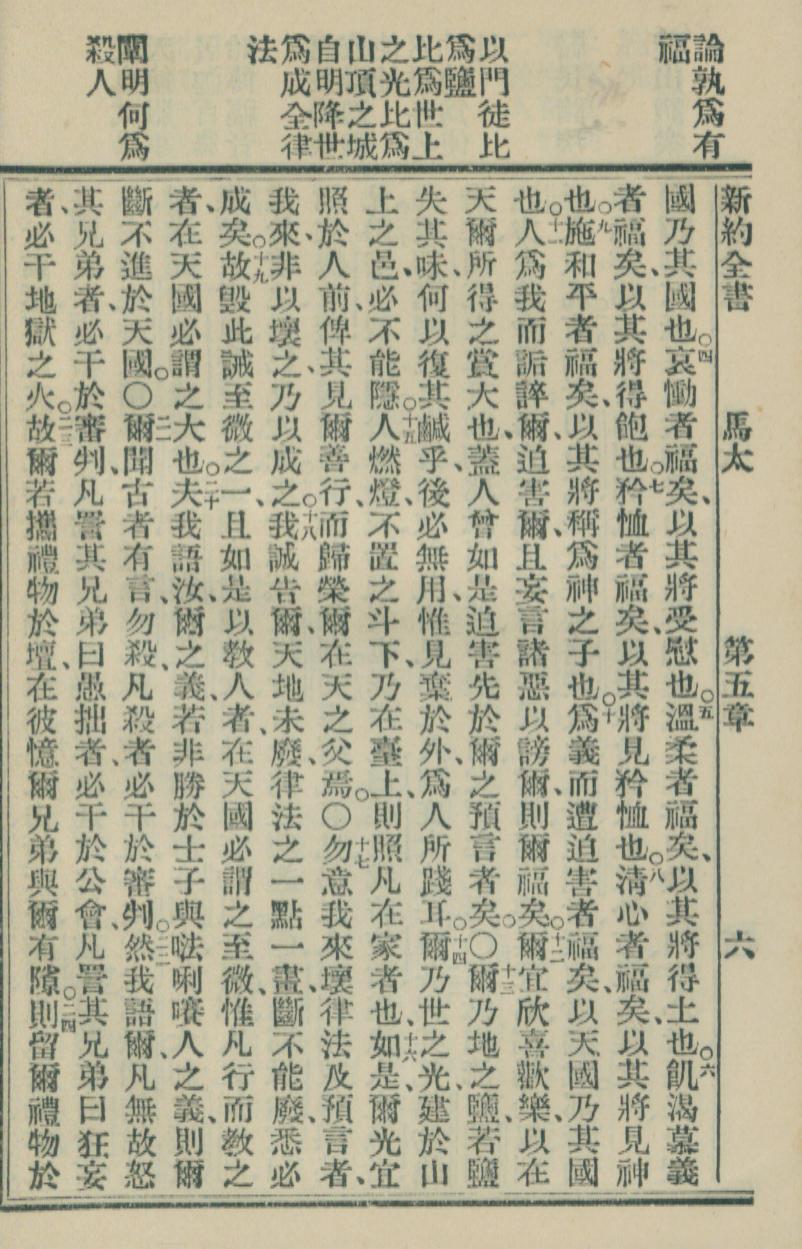 論孰爲有
福
以門徒比
爲鹽
比爲世上
之光比爲
山頂之城
自明降世
爲成全律
法
闡明何爲
殺人
新約全書 馬太 第五章 六
國乃其國也○四哀慟者福矣、以其將受慰也○五溫柔者福矣、以其將得土也○六飢渴慕義
者福矣、以其將得飽也○七矜恤者福矣、以其將見矜恤也○八淸心者福矣、以其將見神
也○九施和平者福矣、以其將稱爲神之子也○十爲義而遭迫害者福矣、以天國乃其國
也○十一人爲我而詬誶爾、迫害爾、且妄言諸惡以謗爾、則爾福矣○十二爾宜欣喜歡樂、以在
天爾所得之賞大也、蓋人曾如是迫害先於爾之預言者矣。○十三爾乃地之鹽、若鹽
失其味、何以復其鹹乎、後必無用、惟見棄於外、爲人所踐耳○十四爾乃世之光、建於山
上之邑、必不能隱○十五人燃燈、不置之斗下、乃在臺上、則照凡在家者也、十六如是、爾光宜
照於人前、俾其見爾善行、而歸榮爾在天之父焉。○十七勿意我來壞律法及預言者、
我來、非以壞之、乃以成之○十八我誠告爾、天地未廢、律法之一點一畫、斷不能廢、悉必
成矣○十九故毀此誡至微之一、且如是以敎人者、在天國必謂之至微、惟凡行而敎之
者、在天國必謂之大也○二十夫我語汝、爾之義、若非勝於士子與𠵽唎㘔人之義、則爾
斷不進於天國。○二一爾聞古者有言、勿殺、凡殺者必干於審判○二二然我語爾、凡無故怒
其兄弟者、必干於審判、凡詈其兄弟曰愚拙者、必干於公會、凡詈其兄弟曰狂妄
者、必干地獄之火○二三故爾若攜禮物於壇、在彼憶爾兄弟與爾有隙、○二四則留爾禮物於